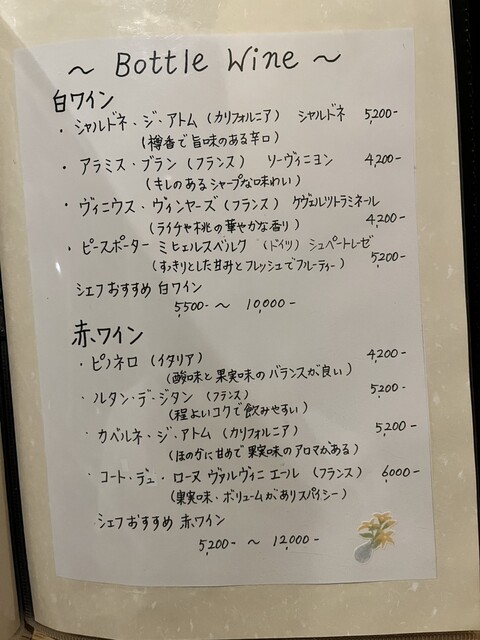 ～ Bottle Wine ～
白ワイン
・ シャルドネ・ジ・アトム (カリフォルニア) シャルドネ 5,200-
(樽香で旨味のある辛口)
・ アラミス・ブラン (フランス) ソーヴィニヨン 4,200-
(キレのあるシャープな味わい)
・ ヴィニウス・ヴィンヤーズ (フランス) ゲヴェルツトラミネール
(ライチャ桃の華やかな香り) 4,200-
・ ピースポーター ミヒェルスベルク (ドイツ) シュペートレーゼ
(すっきりとした甘みとフレッシュでフルーティー) 5,200-
シェフおすすめ 白ワイン
5,500- ～ 10,000-
赤ワイン
・ ピノネロ (イタリア) 4,200-
(酸味と果実味のバランスが良い)
・ ルタン・デ・ジタン (フランス) 5,200-
(程よいコクで飲みやすい)
・ カベルネ・ジ・アトム (カリフォルニア) 5,200-
(ほのかに甘めで果実味のアロマがある)
・ コート・デュ・ローヌ ヴァルヴィニエール (フランス) 6,000-
(果実味・ボリュームがありスパイシー)
シェフおすすめ 赤ワイン
5,200- ～ 12,000-